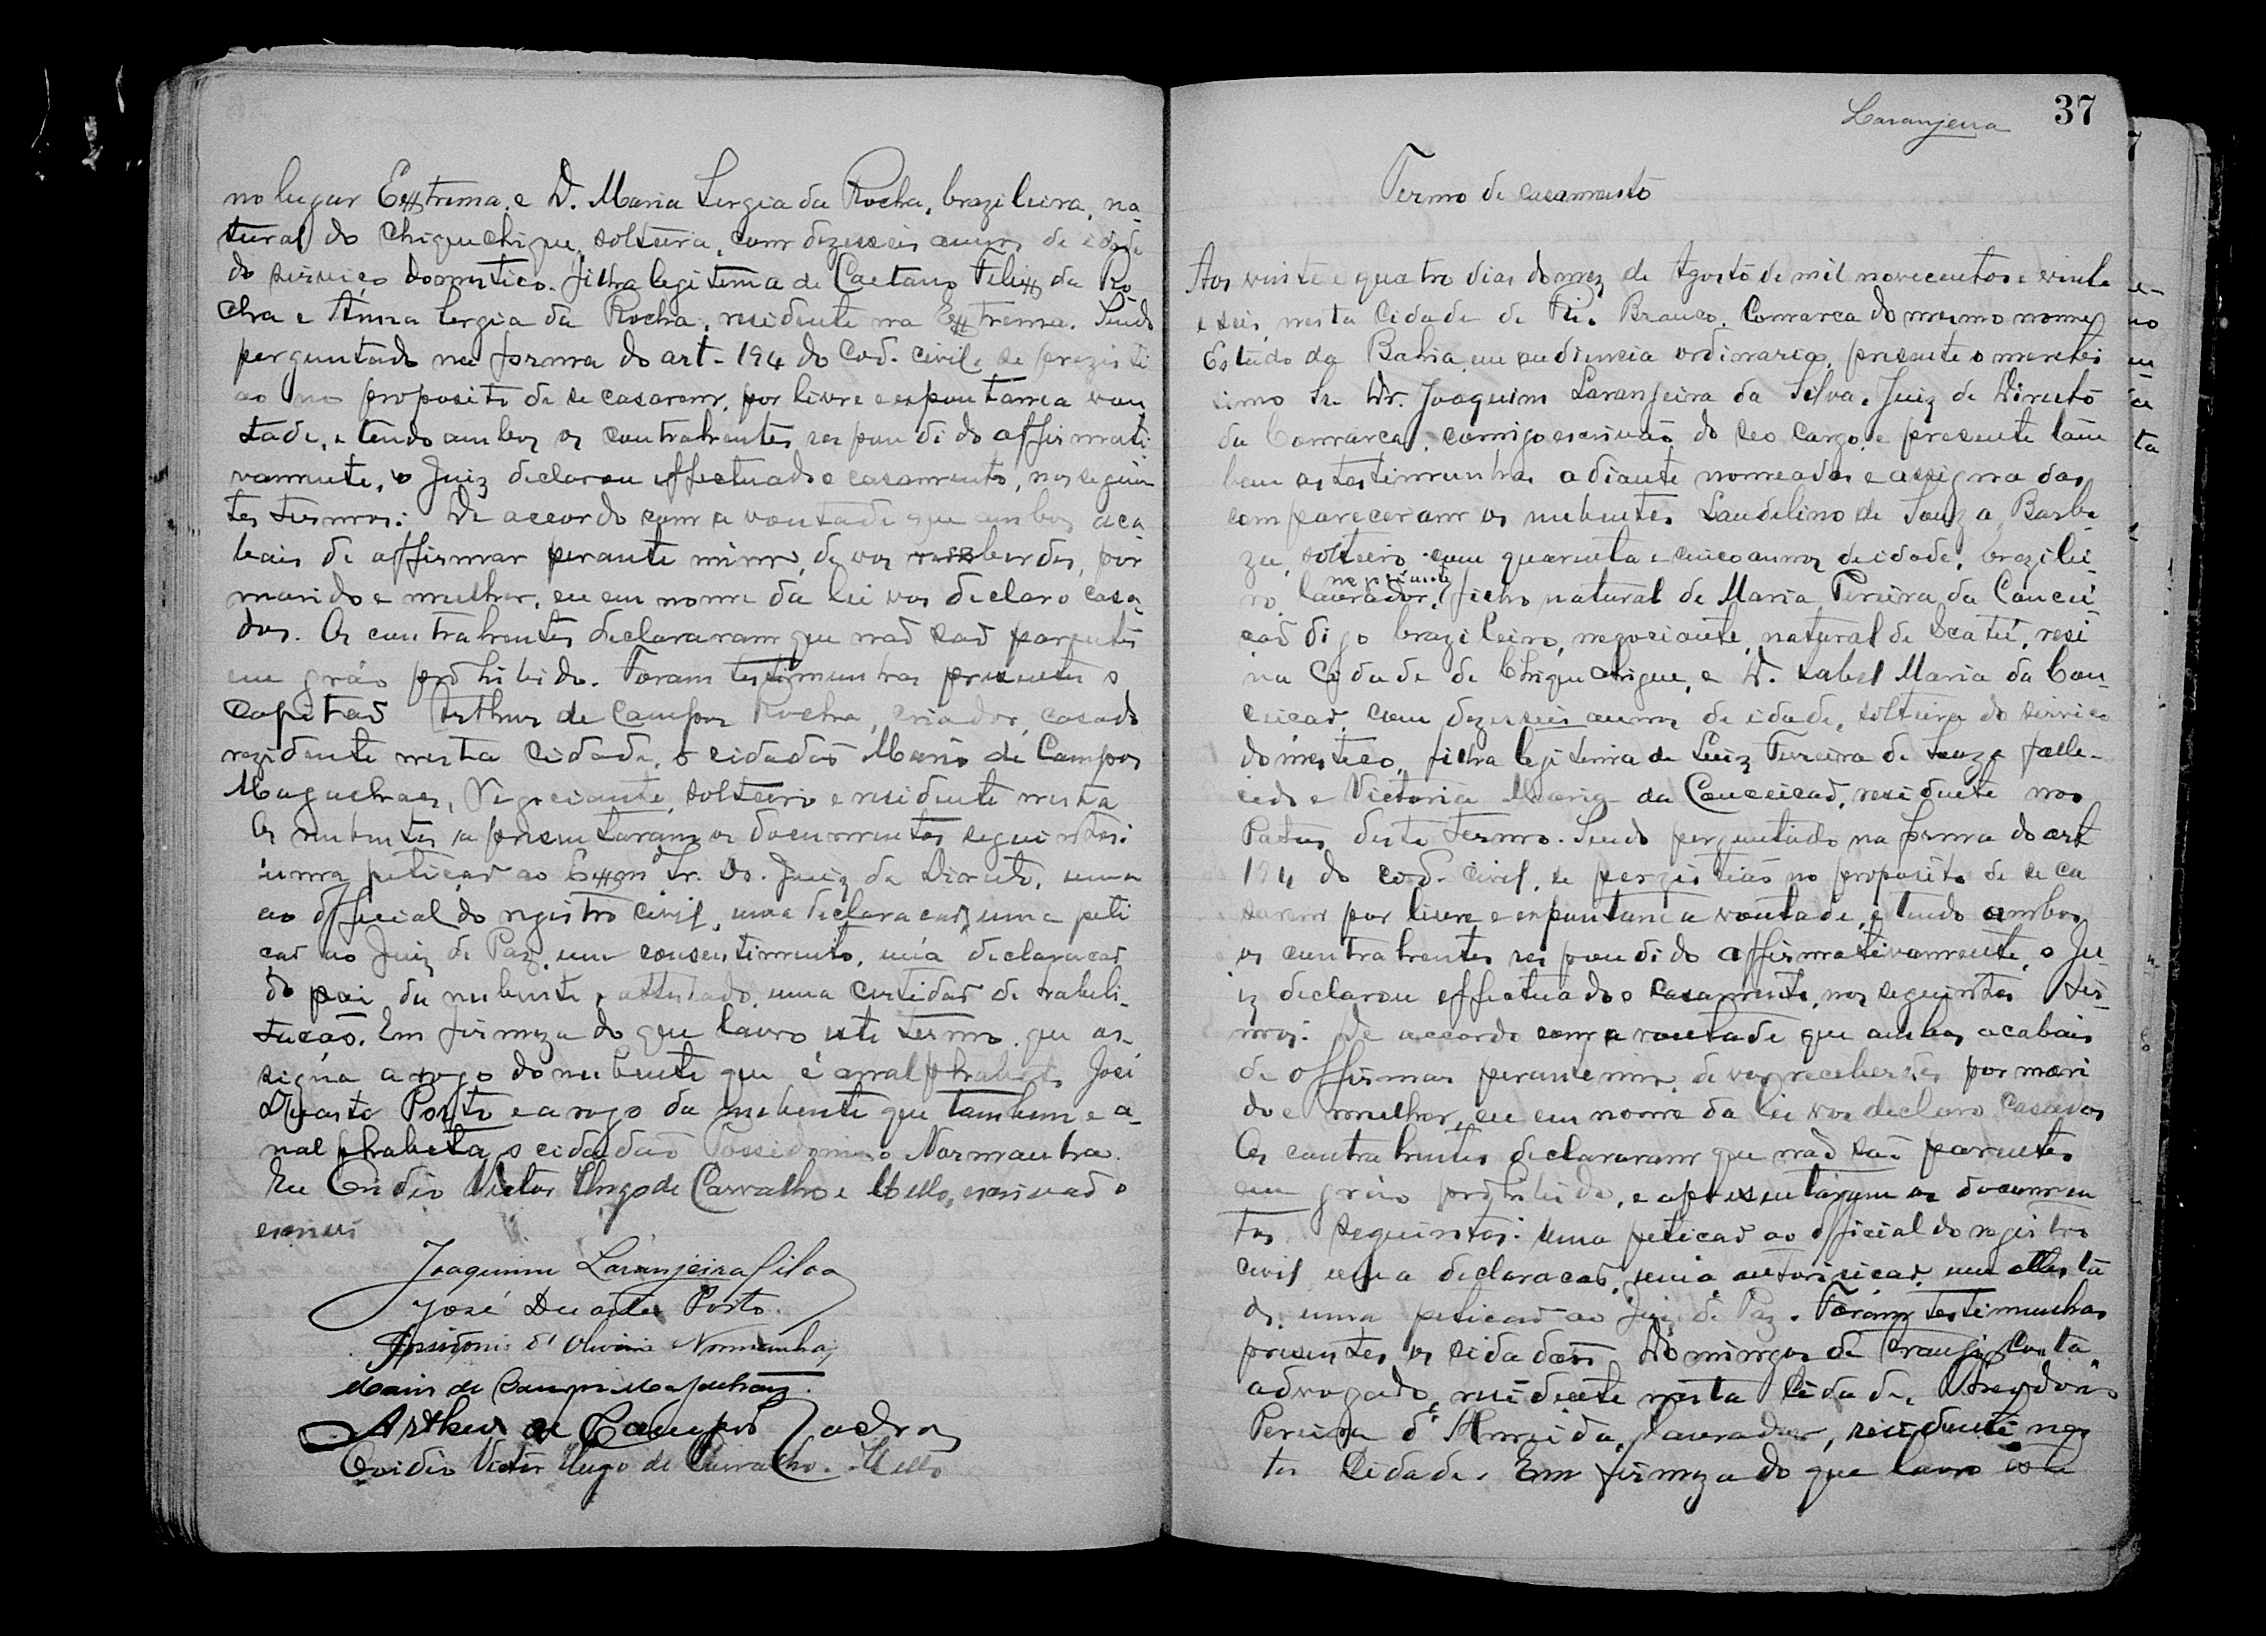 no lugar Extrema, e D. Maria Sergia da Rocha, brazileira, na-
tural do Chiquechique, solteira, com dezeseis annos de idade
do serviço domestico. filha legitima de Caetano Felix da Ro
cha e Anna Sergia da Rocha, residente na Extrema. Sendo
perguntado na forma do art. 194 do Cod. Civil, se prezisti
ao no proposito de se casarem, por livre e espontanea von
tade, e tendo ambos os contrahentes respondido affirmati-
vamente, o Juiz declarou effectuado o casamento, nos seguin
tes termos: De accordo com a vontade que ambos aca
bais de affirmar perante mim, de vos receberdes, por
marido e mulher, eu em nome da lei vos declaro casa
dos. Os contrahentes declararam que não são parentes
em gráo prohibido. Foram testimunhas presentes o
Capitão Arthur de Campos Rocha, criador, casado
rezidente nesta Cidade, o cidadão Mario de Campos
Magalhães, Negociante, solteiro e residente nesta
Os nubentes apresentaram os documentos seguintes:
uma petição ao Exm Sr. Dr. Juiz de Direito, uma
ao official do registro civil, uma declaração, uma peti
ção ao Juiz de Paz, um consentimento, uma declaração
do pai da nubente, attestado, uma certidão de habili-
tação. Em firmeza do que lavro este termo que as-
signa a rogo do nubente que é analphabeto José
Duarte Porto e a rogo da nubente que tambem e a-
nalphabeta, o cidadão Possidonio Normanha.
Eu Ovidio Victor Hugo de Carvalho e Mello, escrivão o
escrevi
Joaquim Laranjeira Silva
José Duarte Porto.
Possidonio d'Oliveira Normanha
Mario de Campos Magalhães.
Arthur de Campos Rocha
Ovidio Victor Hugo de Carvalho. Mello
Laranjeira 37
Termo de casamento
Aos vinte e quatro dias do mez de Agosto de mil novecentos e vinte
e seis, nesta Cidade de Rio Branco, Comarca do mesmo nome
Estado da Bahia, em audiencia ordinaria, presente o meretis
simo Sr. Dr. Joaquim Laranjeira da Silva, Juiz de Direito
da Comarca, comigo escrivão do seo cargo, e presente tam
bem as testimunhas adiante nomeadas e assignadas
compareceram os nubentes Laudelino de Souza Barbo
za, solteiro com quarenta e cinco annos de idade, brazilei-
negociante
ro, lavrador, filho natural de Maria Pereira da Concei
ção digo brazileiro, negociante, natural de Scatú, resi
na Cidade de Chiquechique, e D. Isabel Maria da Con-
ceição, com dezesseis annos de idade, solteira do serviço
domestico, filha legitima de Luiz Ferreira de Souza falle-
cido e Victoria Maria da Conceicão, residente nos
Patos deste termo. Sendo perguntado na forma do art
194 do cod. civil, se prezistião no proposito de se ca
sarem por livre e espontanea vontade, e tendo ambos
os contrahentes respondido affirmativamente, o Ju-
iz declarou effectuado o casamento, nos seguintes ter-
mos: De accordo com a vontade que ambos acabais
de affirmar perante mim, de vos receberdes por mari
do e mulher, eu em nome da lei vos declaro casados
Os contrahentes declararam que não são parentes
em gráo prohibido, e apresentaram os documen
tos seguintes: uma petição ao official do registro
civil uma declaração, uma autorização, um attesta
do, uma petição ao Juiz de Paz. Foram testimunhas
presentes os cidadãos Domingos de Araujo Costa
advogado, residente nesta Cidade,
Pereira d'Almeida, lavrador, residente nes
ta Cidade. Em firmeza do que lavro este